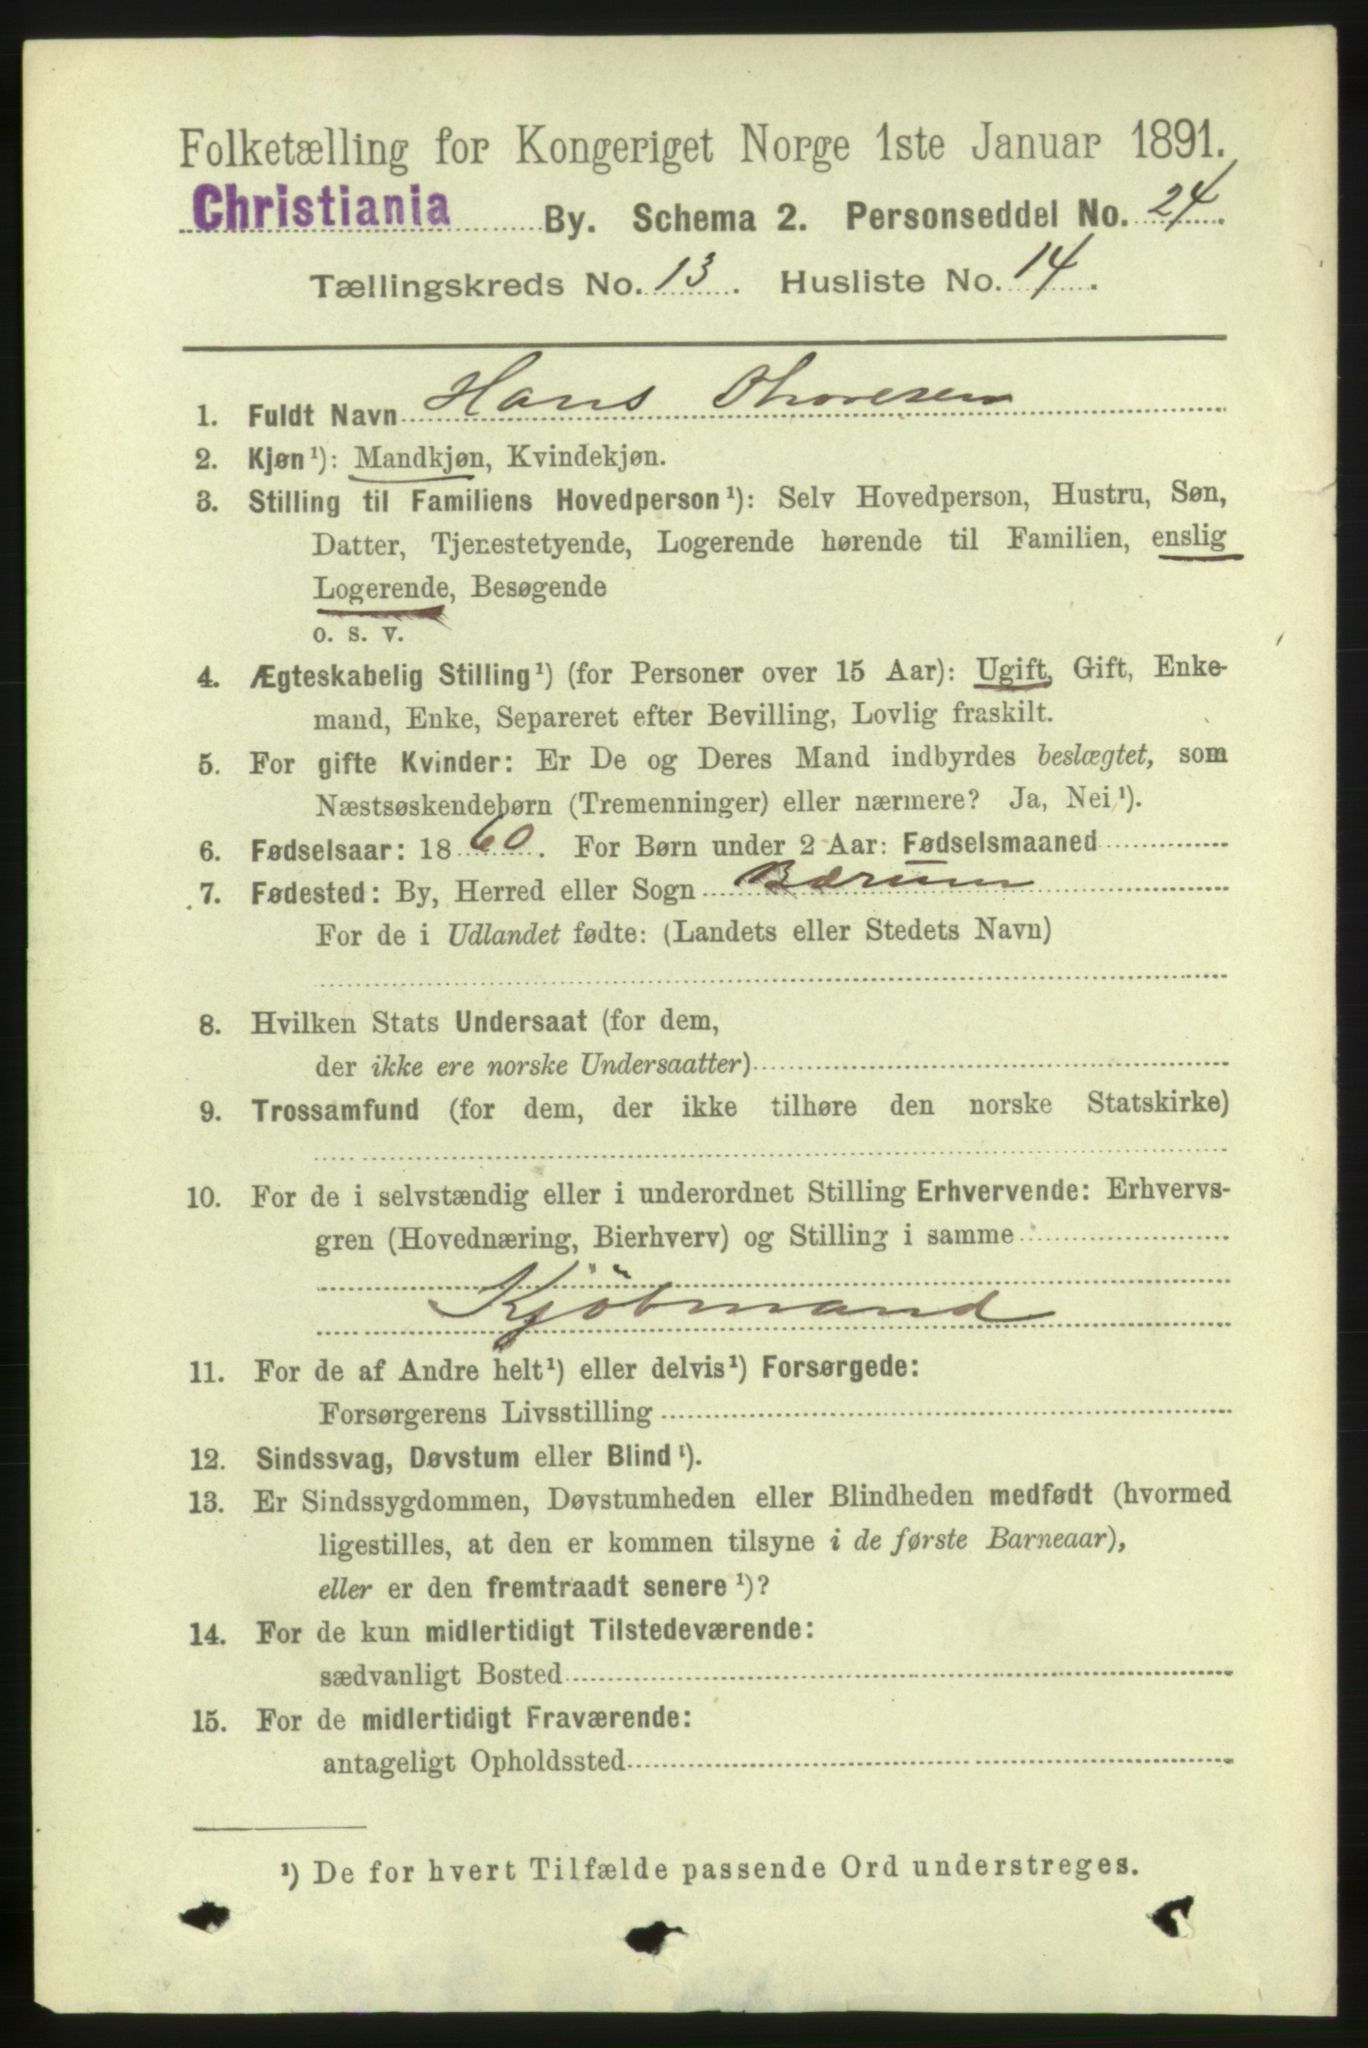 Folketælling for Kongeriget Norge 1ste Januar 1891.
Christiania By. Schema 2. Personseddel No. 24.
Tællingskreds No. 13. Husliste No. 14.
1. Fuldt Navn Hans Thoresen
2. Kjøn¹): Mandkjøn, Kvindekjøn.
3. Stilling til Familiens Hovedperson¹): Selv Hovedperson, Hustru, Søn,
Datter, Tjenestetyende, Logerende hørende til Familien, enslig
Logerende, Besøgende
o. s. v.
4. Ægteskabelig Stilling¹) (for Personer over 15 Aar): Ugift, Gift, Enke-
mand, Enke, Separeret efter Bevilling, Lovlig fraskilt.
5. For gifte Kvinder: Er De og Deres Mand indbyrdes beslægtet, som
Næstsøskendebørn (Tremenninger) eller nærmere? Ja, Nei¹).
6. Fødselsaar: 1860. For Børn under 2 Aar: Fødselsmaaned
7. Fødested: By, Herred eller Sogn Bærum
For de i Udlandet fødte: (Landets eller Stedets Navn)
8. Hvilken Stats Undersaat (for dem,
der ikke ere norske Undersaatter)
9. Trossamfund (for dem, der ikke tilhøre den norske Statskirke)
10. For de i selvstændig eller i underordnet Stilling Erhvervende: Erhvervs-
gren (Hovednæring, Bierhverv) og Stilling i samme
Kjöbmand
11. For de af Andre helt¹) eller delvis¹) Forsørgede:
Forsørgerens Livsstilling
12. Sindssvag, Døvstum eller Blind¹).
13. Er Sindssygdommen, Døvstumheden eller Blindheden medfødt (hvormed
ligestilles, at den er kommen tilsyne i de første Barneaar),
eller er den fremtraadt senere¹)?
14. For de kun midlertidigt Tilstedeværende:
sædvanligt Bosted
15. For de midlertidigt Fraværende:
antageligt Opholdssted
¹) De for hvert Tilfælde passende Ord understreges.